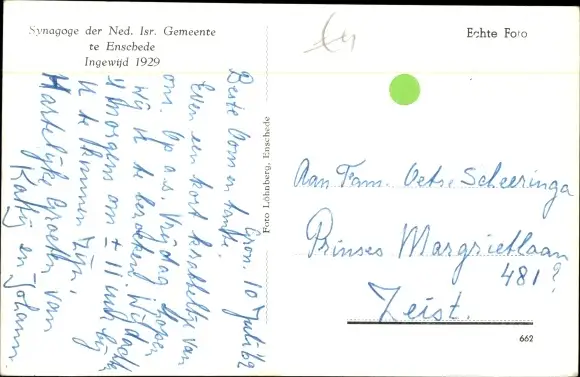 Synagoge der Ned. Isr. Gemeente
te Enschede
Ingewijd 1929
Echte Foto
Gron. 10 Juli '62
Beste Oom en tante.
Even een kort krabbeltje van
ons. Op a.s. Vrijdag hopen
wij U te bezoeken. Wij dachten
's morgens om ± 11 uur bij
U te kunnen zijn.
Hartelijke Groeten van
Kathy en Johann
Foto Löhnberg, Enschede
Aan Fam. Scheeringa
Prinses Margrietlaan
481?
Zeist.
662